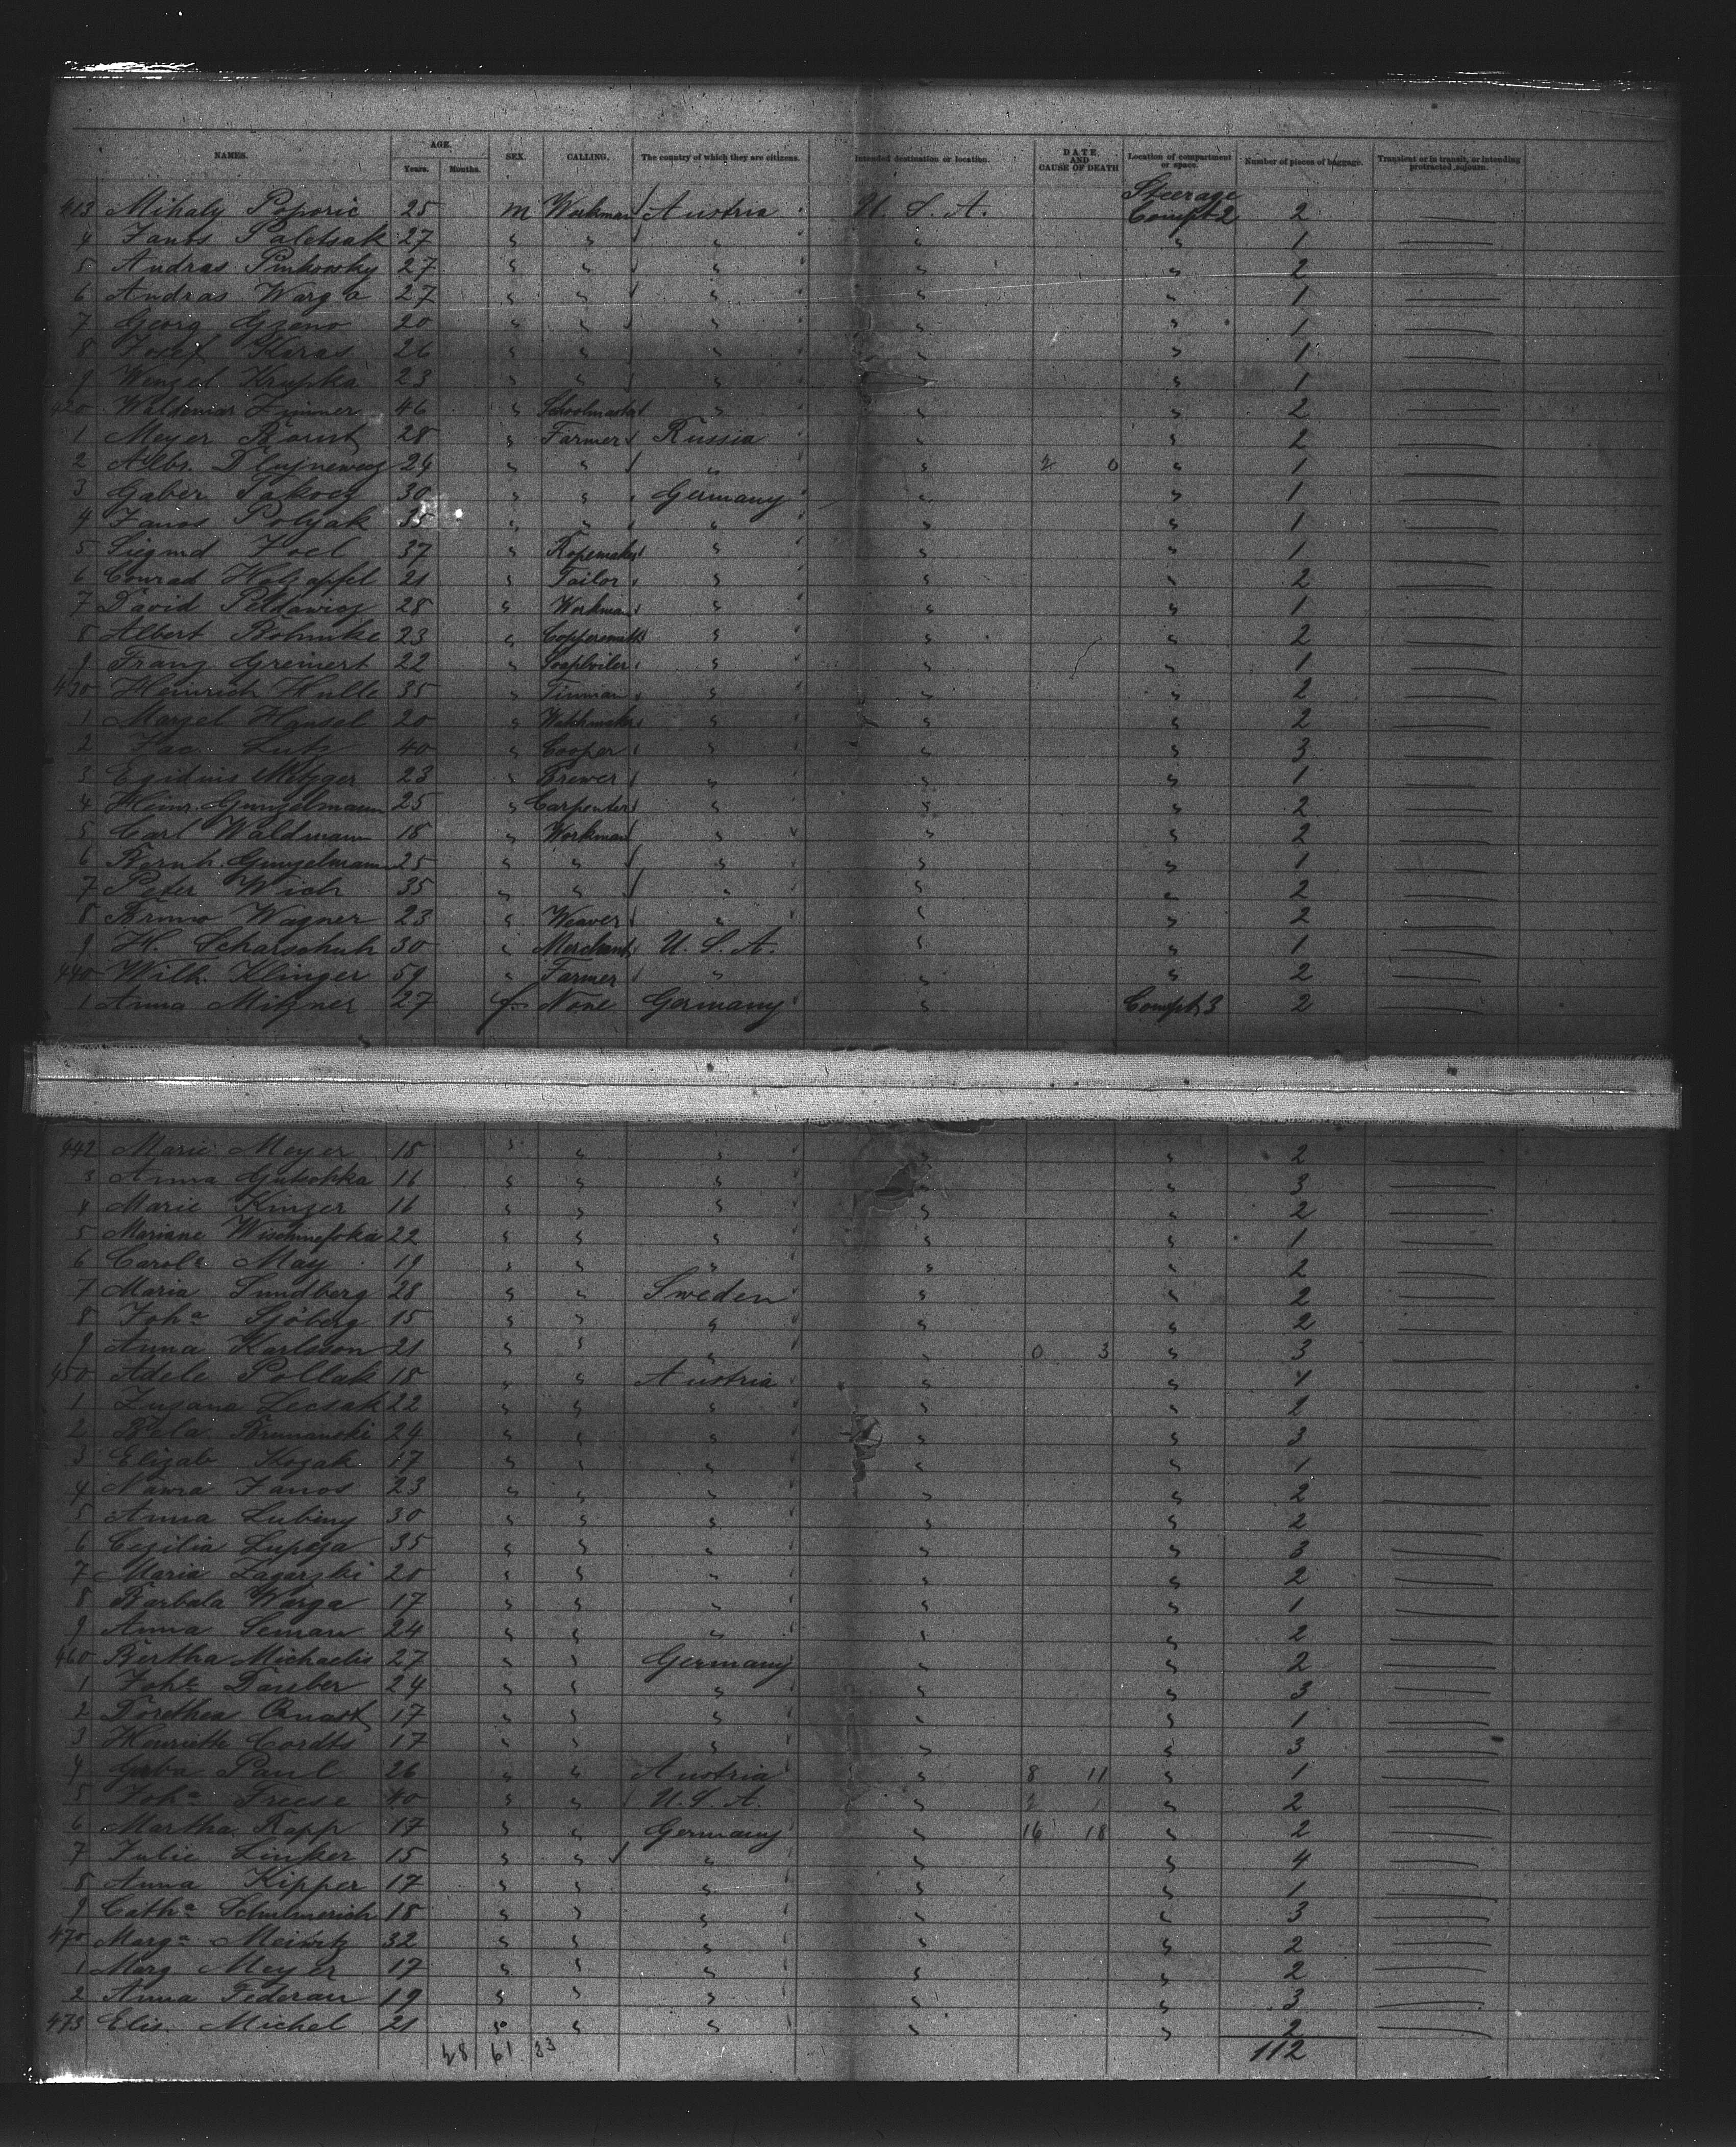 NAMES. AGE. Years. Months. SEX. CALLING. The country of which they are citizens. Intended destination or location. DATE AND CAUSE OF DEATH Location of compartment or space. Number of pieces of baggage. Transient or in transit, or intending protracted sojourn.
413 Mihaly Poporic 25 m Workman Austria U. S. A. Steerage Compt 2 2
4 Janos Paletsak 27 " " " " " 1
5 Andras Pinkowsky 27 " " " " " 2
6 Andras Warga 27 " " " " " 1
7 Georg Gzeno 20 " " " " " 1
8 Josef Keras 26 " " " " " 1
9 Wenzel Krupka 23 " " " " " 1
420 Waldemar Zimmer 46 " Schoolmaster " " " 2
1 Meyer 28 " Farmer Russia " " 2
2 Albr. 24 " " " " 2 0 " 1
3 Gaber 30 " " Germany " " 1
4 Janos Polyak 35 " " " " " 1
5 Siegmd 37 " Ropemaker " " " 1
6 Conrad Holzapfel 21 " Tailor " " " 2
7 David Peldawicz 28 " Workman " " " 1
8 Albert Böhmke 23 " Coppersmith " " " 2
9 Franz Greinert 22 " Soapboiler " " " 1
430 Heinrich Hulle 35 " Tinman " " " 2
1 Marzel Hansel 20 " Watchmaker " " " 2
2 Jac. Lutz 40 " Cooper " " " 3
3 Egidius Metzger 23 " Brewer " " " 1
4 Heinr. Gunzelmann 25 " Carpenter " " " 2
5 Carl Waldmann 18 " Workman " " " 2
6 Bernh. Gunzelmann 25 " " " " " 1
7 Peter Wich 35 " " " " " 2
8 Bruno Wagner 23 " Weaver " " " 2
9 H. Scharschuh 30 " Merchant U. S. A. " " 1
440 Wilh. Klinger 59 " Farmer " " " 2
1 Anna Mitzner 27 f. None Germany " Compt 3 2
442 Marie Meyer 18 " " " " " 2
3 Anna Gutschka 16 " " " " " 3
4 Marie Kinzer 16 " " " " " 2
5 Mariane 22 " " " " " 1
6 Carole May 19 " " " " " 2
7 Maria Sundberg 28 " " Sweden " " 2
8 Joha Sjöberg 15 " " " " " 2
9 Anna Karlsson 21 " " " " 0 3 " 3
450 Adele Pollak 18 " " Austria " " 1
1 Zuzana Lecsak 22 " " " " " 2
2 Bela Brumanski 24 " " " " " 3
3 Elizab Kozak 17 " " " " " 1
4 Janos 23 " " " " " 2
5 Anna Lubiny 30 " " " " " 2
6 Cezilia Lupeza 35 " " " " " 3
7 Maria Zagarski 20 " " " " " 2
8 Barbala Warga 17 " " " " " 1
9 Anna Seman 24 " " " " " 2
460 Bertha Michaelis 27 " " Germany " " 2
1 Johe Dauber 24 " " " " " 3
2 Dorethea Quast 17 " " " " " 1
3 Henriette Cordts 17 " " " " " 3
4 Paul 26 " " Austria " 8 11 " 1
5 Joha Freese 40 " " U. S. A. " " 2
6 Martha Rapp 17 " " Germany " 16 18 " 2
7 Julie Linker 15 " " " " " 4
8 Anna Kipper 17 " " " " " 1
9 Catha Schulmerich 18 " " " " " 3
470 Marga Meiwitz 32 " " " " " 2
1 Marg. Meyer 17 " " " " " 2
2 Anna Federau 19 " " " " " 3
473 Elis. Michel 21 " " " " " 2
112